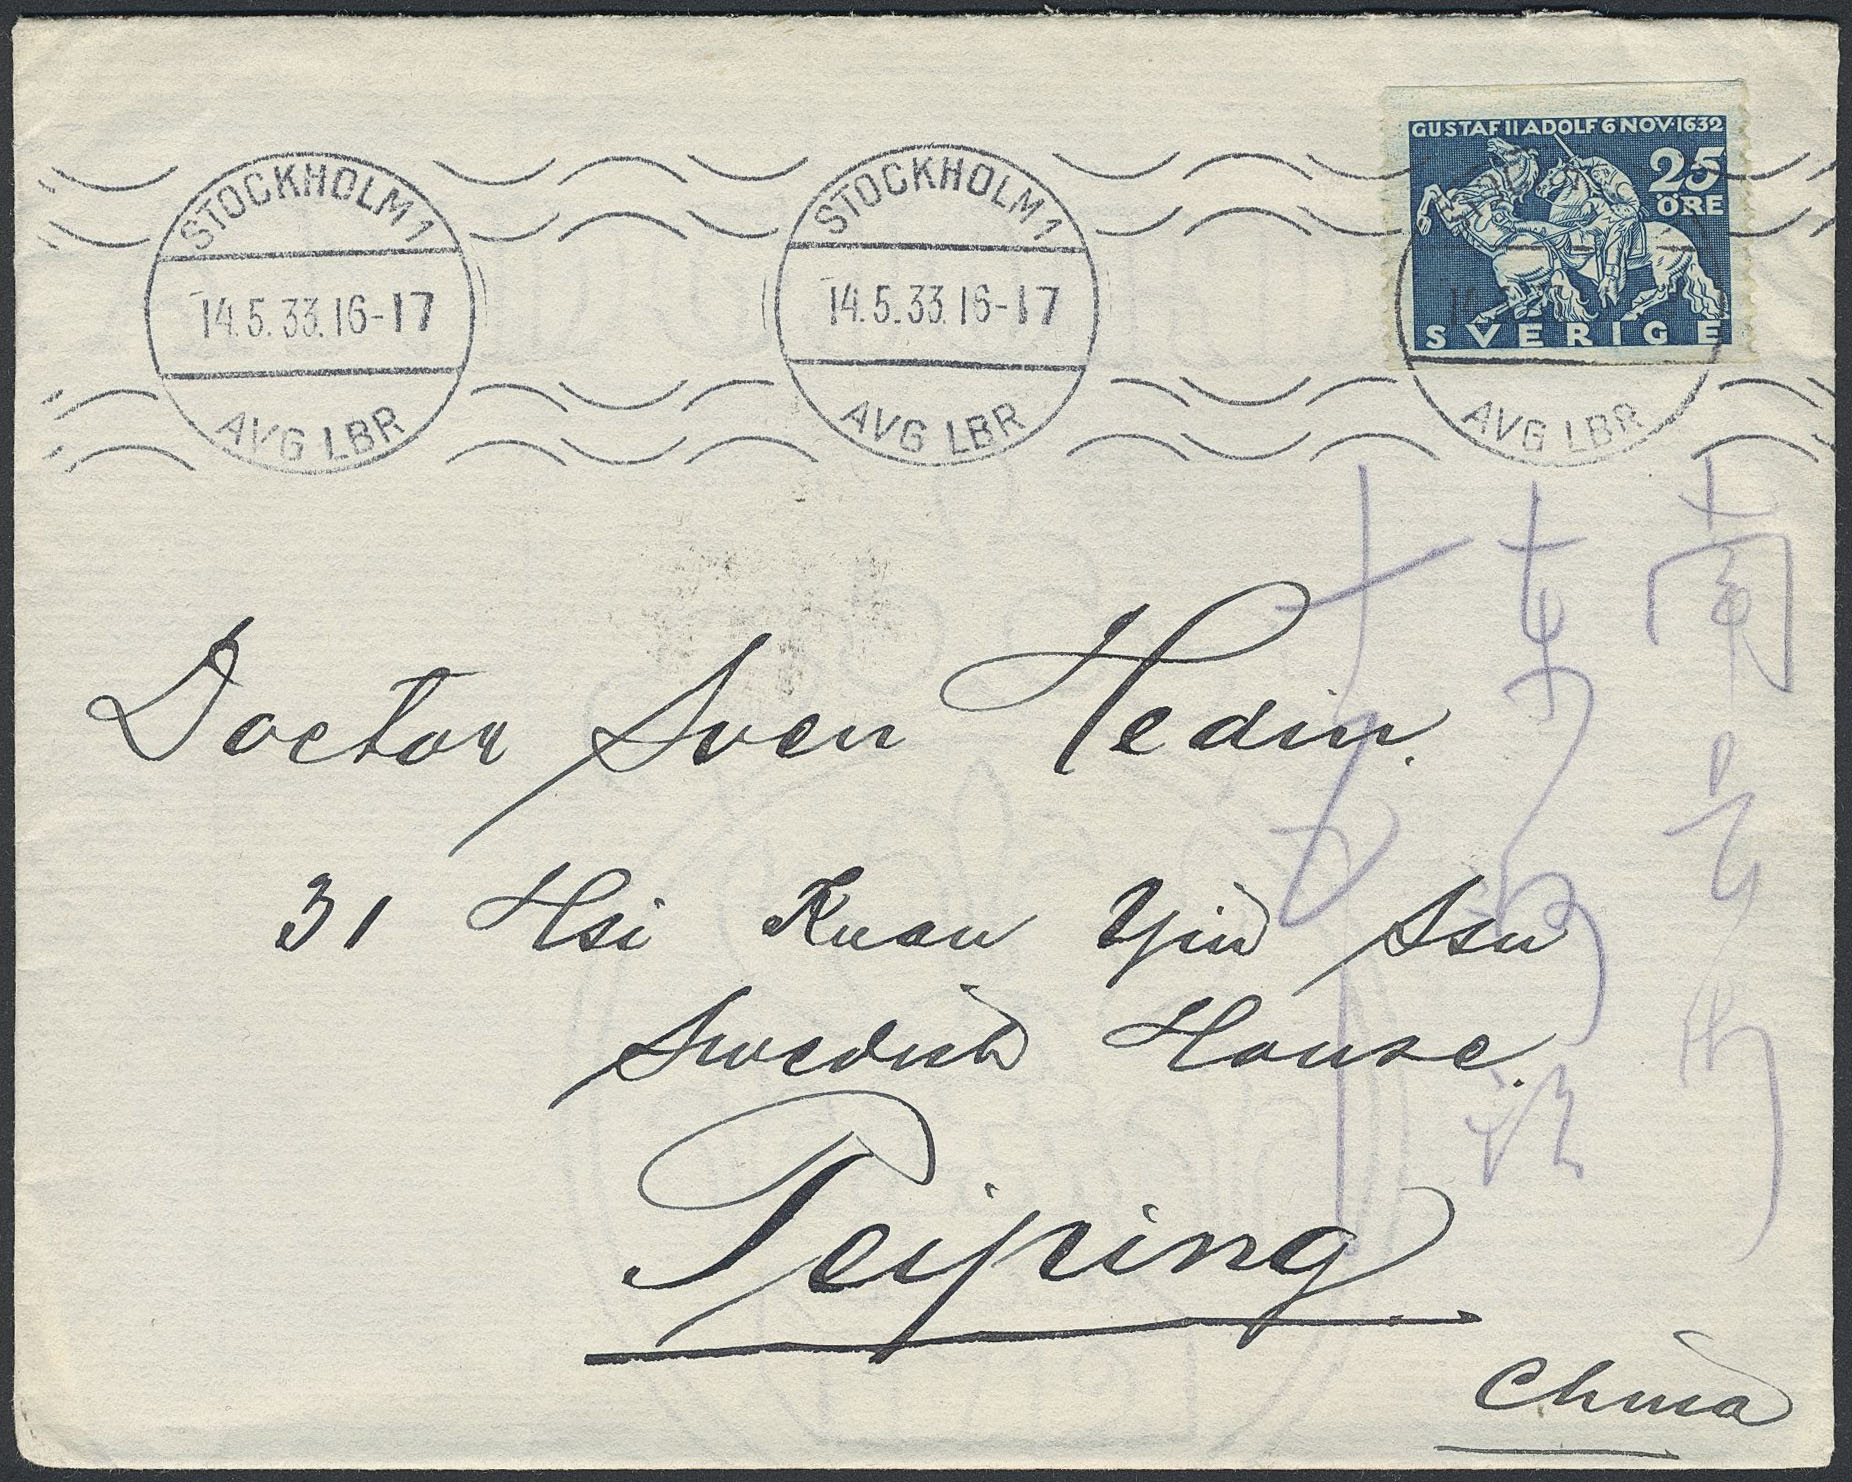 STOCKHOLM 1
14.5.33.16-17
AVG LBR
STOCKHOLM 1
14.5.33.16-17
AVG LBR
GUSTAF II ADOLF 6 NOV·1632
25
ÖRE
SVERIGE
14
AVG LBR
Doctor Sven Hedin.
31 Hsi Kuan Yin Ssu
Swedish House.
Peiping
China